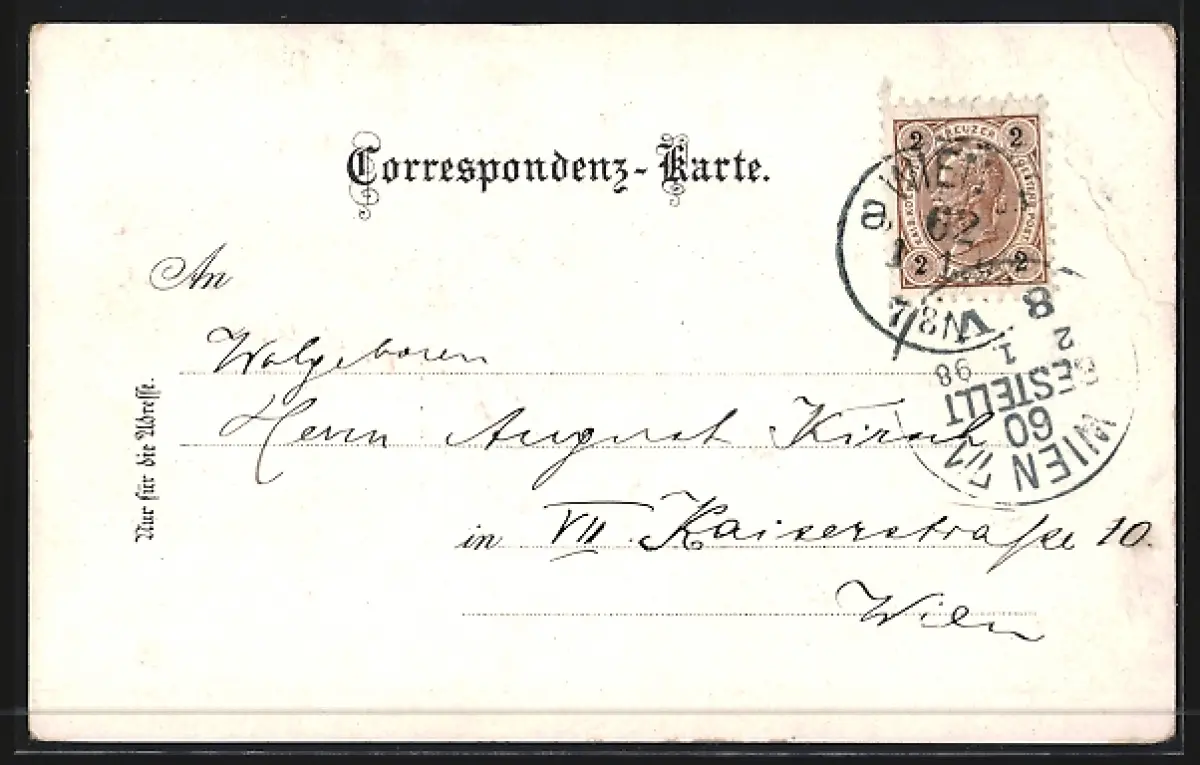 Correspondenz-Karte.
2 KREUZER 2
2 2
WIEN
62
8 V
2 1. 98
BESTELLT
WIEN 7/1
60
An
Wolgeboren
Herrn August Kirsch
in VII. Kaiserstraße 10.
Wien
Nur für die Adresse.